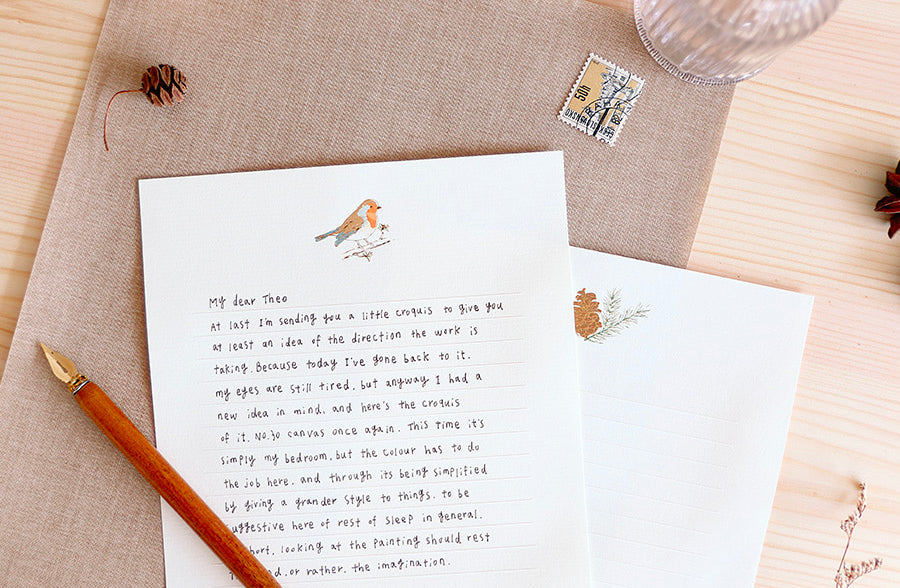 50h
ČESKOSLOVENSKO
My dear Theo
At last I'm sending you a little croquis to give you
at least an idea of the direction the work is
taking. Because today I've gone back to it.
my eyes are still tired. but anyway I had a
new idea in mind, and here's the croquis
of it. No.30 canvas once again. This time it's
simply my bedroom, but the colour has to do
the job here, and through its being simplified
by giving a grander style to things, to be
suggestive here of rest of sleep in general.
hort, looking at the painting should rest
d, or rather, the imagination.